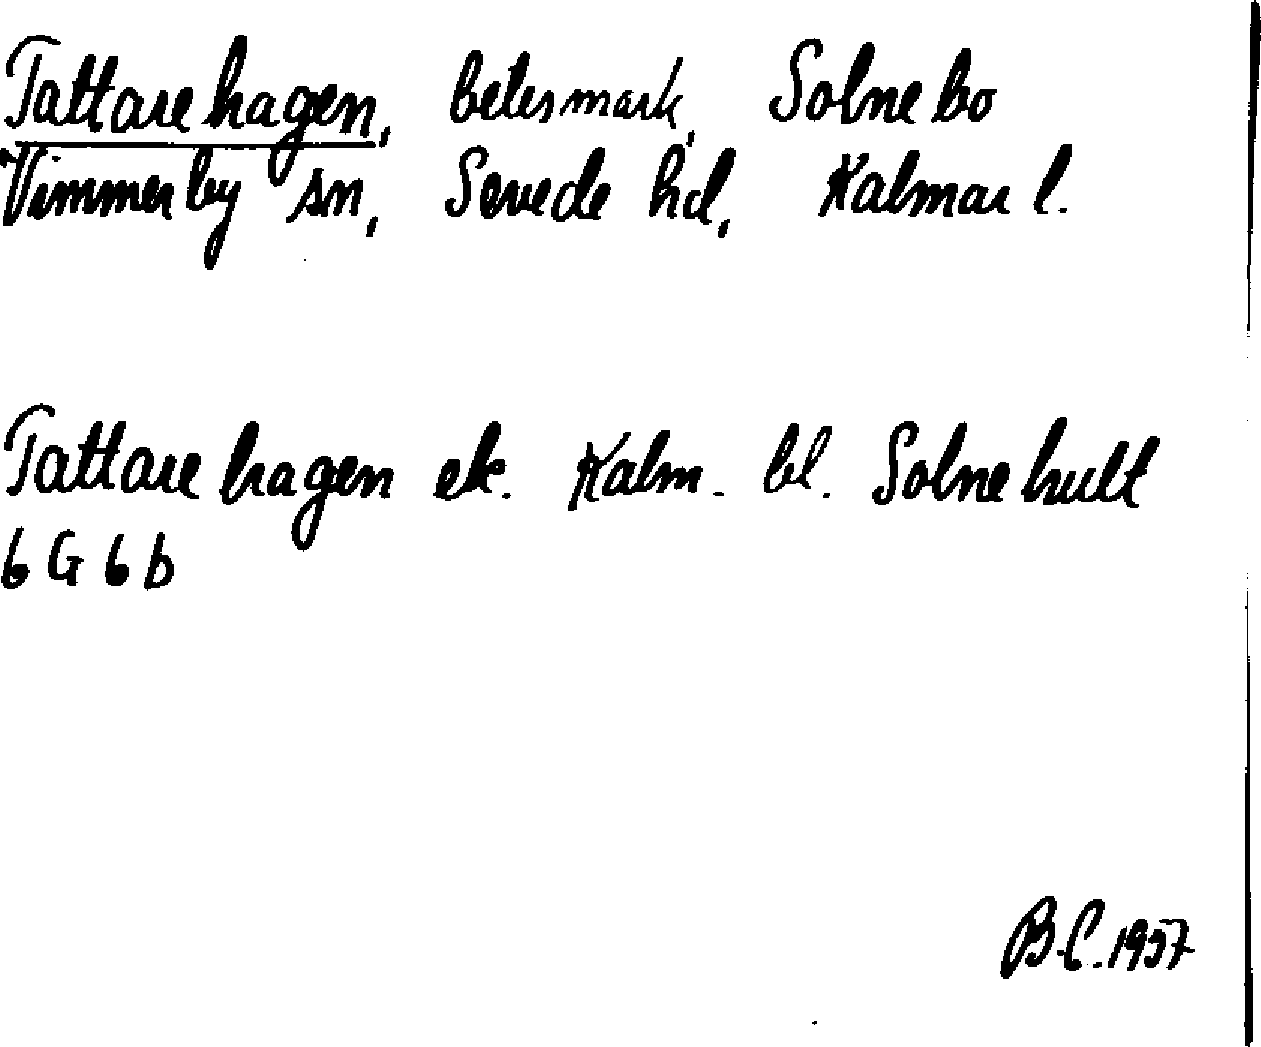 Tattarehagen, betesmark, Solnebo
Vimmerby sn, Sevede hd, Kalmar l.
Tattarehagen ek. Kalm. bl. Solnehult
6G6b
B.C. 1957